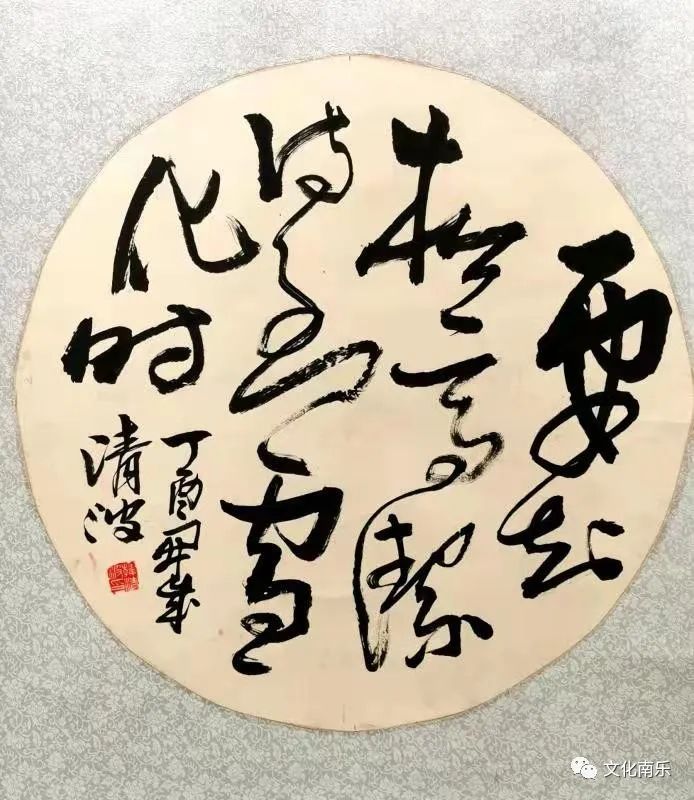 要知
松高潔
待到雪
化时
丁酉
清波
文化南乐